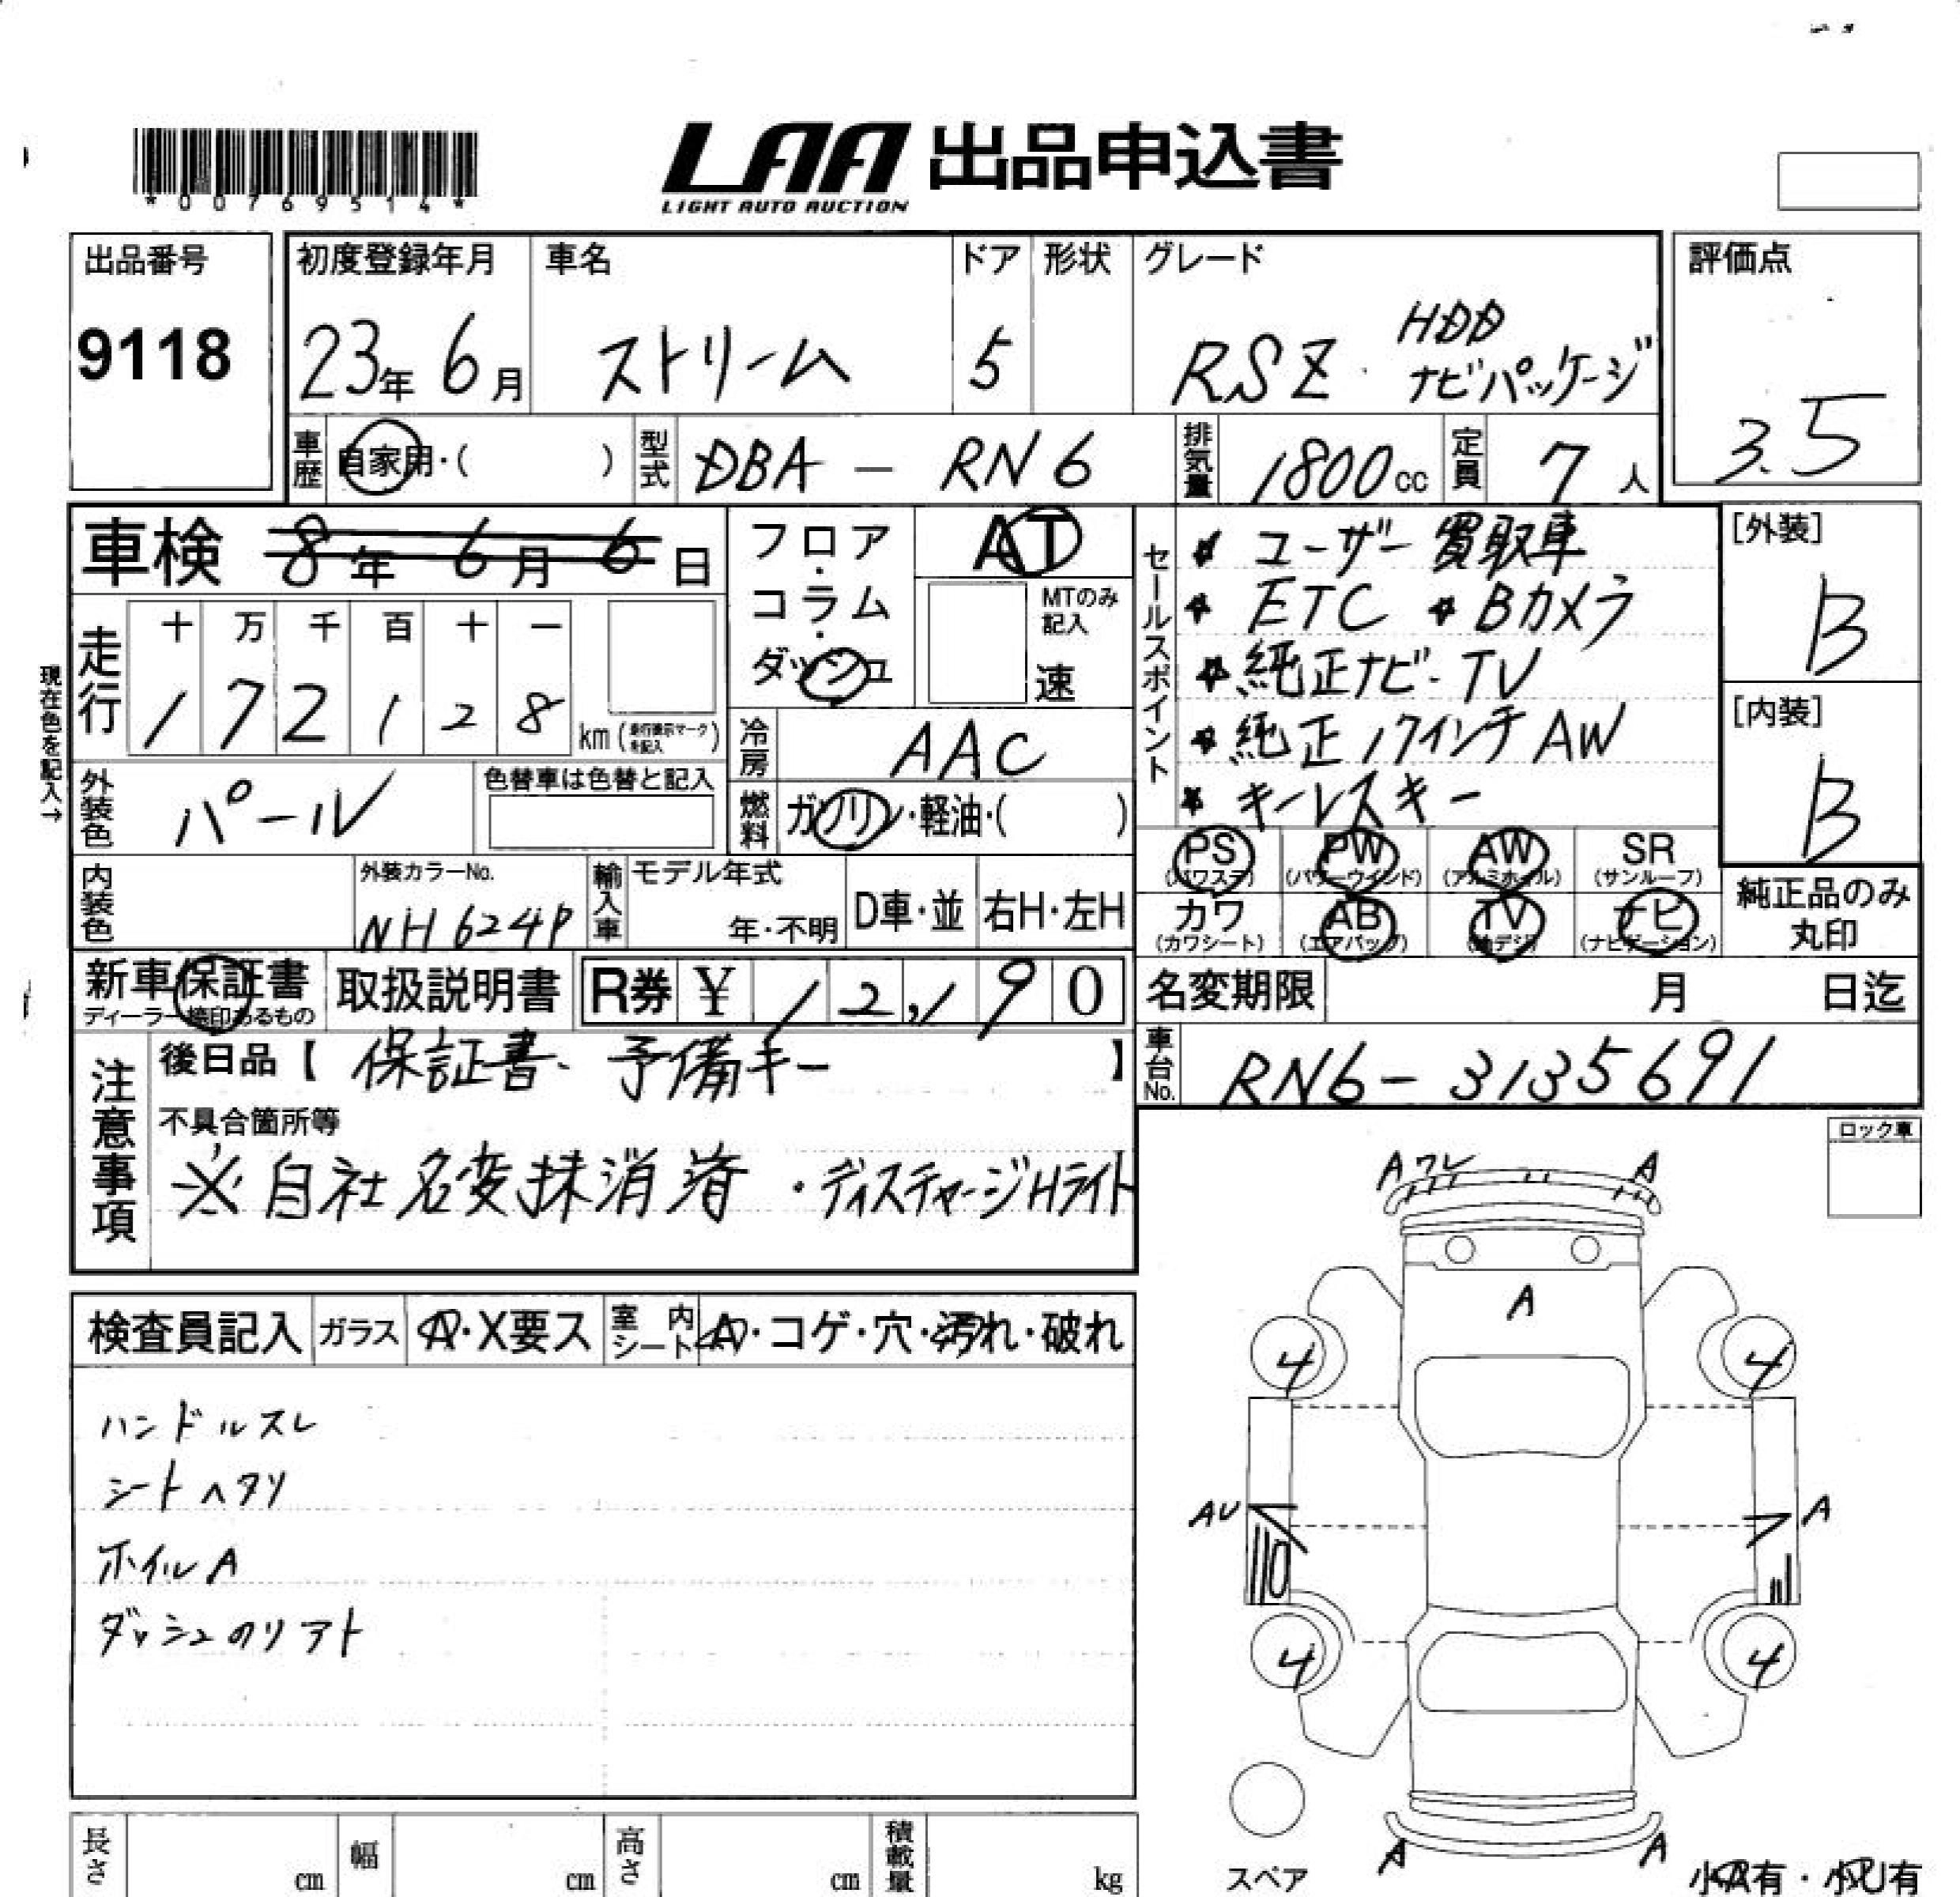 *00769514*
LAA 出品申込書
LIGHT AUTO AUCTION
出品番号
9118
初度登録年月
23年 6月
車名
ストリーム
ドア
5
形状
グレード
RSZ HDD
ナビパッケージ
評価点
3.5
車歴
自家用・( )
型式
DBA - RN6
排気量
1800cc
定員
7人
車検 8年 6月 6日
フロア・コラム・ダッシュ
AT
MTのみ
記入
速
セールスポイント
★ ユーザー買取車
★ ETC ★ Bカメラ
★ 純正ナビ・TV
★ 純正17インチAW
★ キーレスキー
[外装]
B
[内装]
B
現在色を記入→
走行
十 万 千 百 十 一
1 7 2 1 2 8
km (走行表示マークを記入)
冷房
AAC
外装色
パール
色替車は色替と記入
燃料
ガソリン・軽油・( )
PS
(パワステ)
PW
(パワーウインド)
AW
(アルミホイル)
SR
(サンルーフ)
内装色
外装カラーNo.
NH624P
輸入車
モデル年式
年・不明
D車・並
右H・左H
カワ
(カワシート)
AB
(エアバッグ)
TV
(地デジ)
ナビ
(ナビゲーション)
純正品のみ
丸印
新車保証書
ディーラー捺印あるもの
取扱説明書
R券 ¥ 12,190
名変期限 月 日迄
注意事項
後日品【 保証書、予備キー 】
車台No.
RN6-3135691
不具合箇所等
※自社名変抹消済 ・ディスチャージHライト
ロック車
A ワレ A
A
4 4
AU A
4 4
A A
検査員記入
ガラス
A・X要ス
室内シート
A・コゲ・穴・汚れ・破れ
ハンドルスレ
シートヘタリ
ホイルA
ダッシュのリアト
長さ cm
幅 cm
高さ cm
積載量 kg
スペア
小A有・小U有